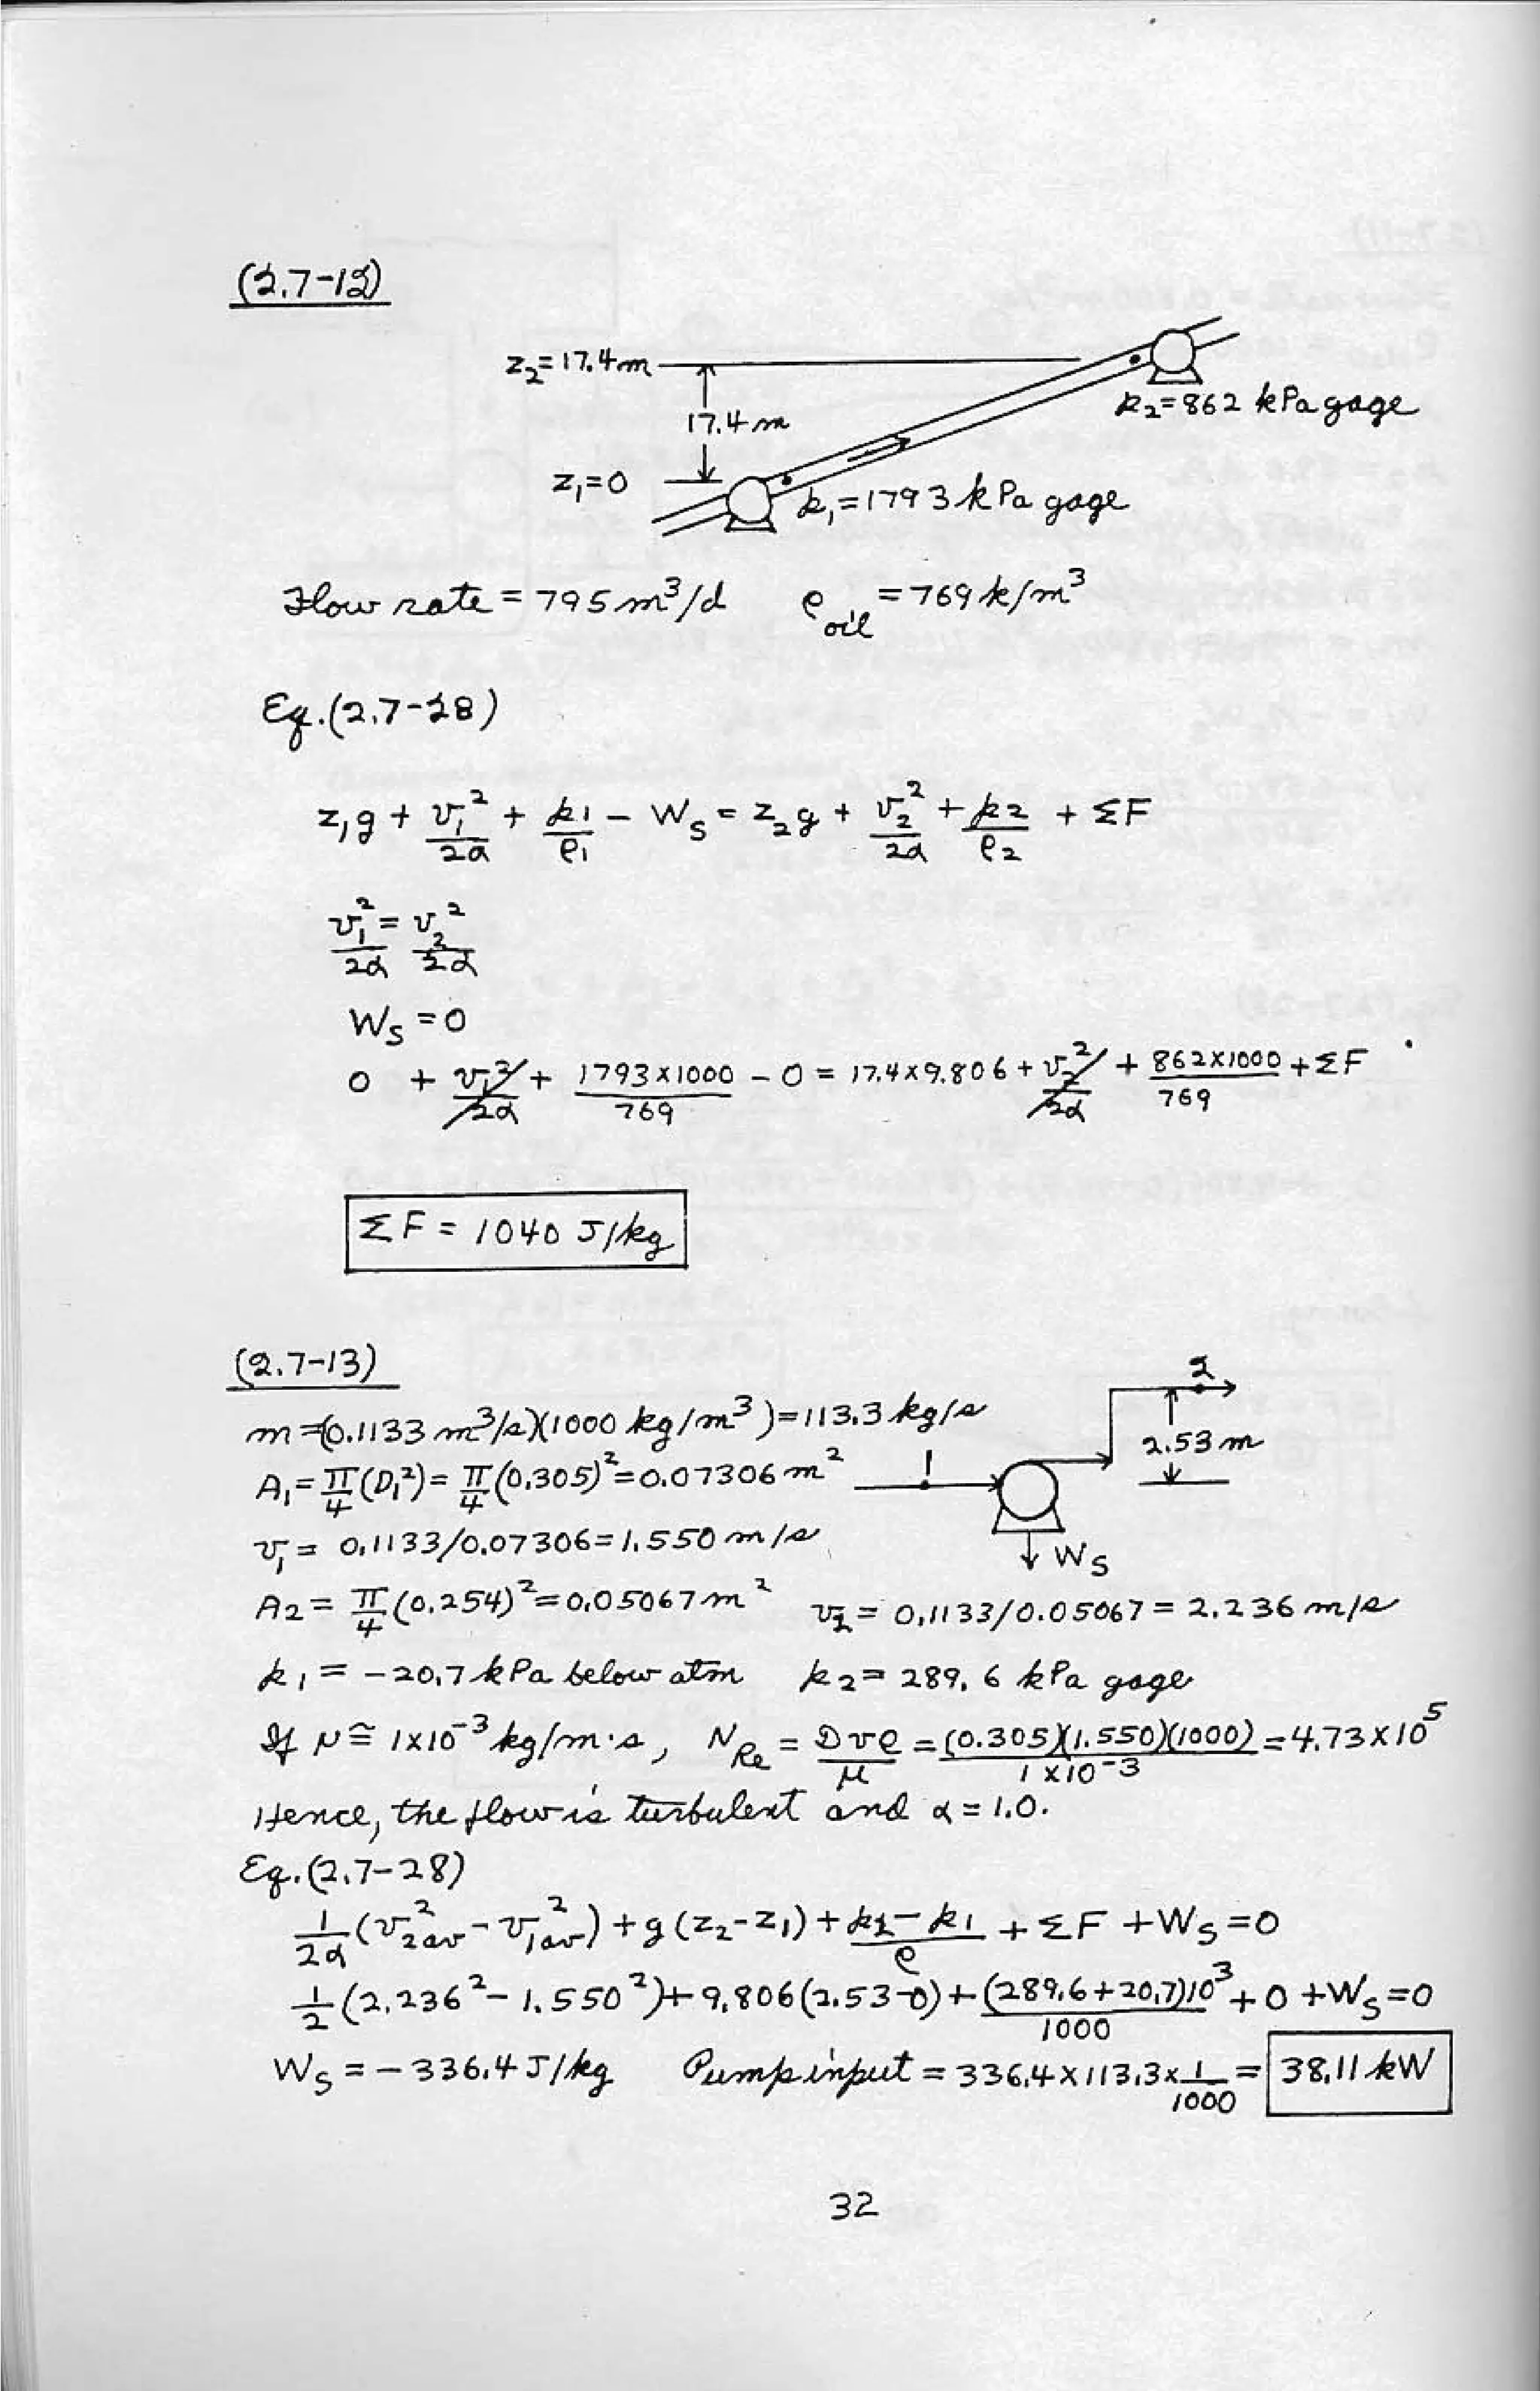 (2.7-12)
z₂=17.4m
17.4 m
p₂=862 kPa gage
z₁=0
p₁=1793 kPa gage
Flow rate = 795 m³/d   ρ_oil = 769 k/m³
Eq.(2.7-28)
z₁g + v₁²/2α + p₁/ρ₁ - W_S = z₂g + v₂²/2α + p₂/ρ₂ + ΣF
v₁²/2α = v₂²/2α
W_S = 0
0 + v₁²/2α + 1793×1000/769 - 0 = 17.4×9.806 + v₂²/2α + 862×1000/769 + ΣF
ΣF = 1040 J/kg
(2.7-13)
2
m=(0.1133 m³/s)(1000 kg/m³)=113.3 kg/s
2.53 m
A₁=π/4(D₁²)=π/4(0.305)²=0.07306 m²
1
v₁ = 0.1133/0.07306=1.550 m/s
W_S
A₂= π/4(0.254)²=0.05067 m²   v₂= 0.1133/0.05067 = 2.236 m/s
p₁ = -20.7 kPa below atm   p₂= 289.6 kPa gage
If μ≅ 1×10⁻³ kg/m·s, N_Re = Dvρ/μ = (0.305)(1.550)(1000)/1×10⁻³ = 4.73×10⁵
Hence, the flow is turbulent and α = 1.0.
Eq.(2.7-28)
1/2α (v²₂av - v²₁av) + g(z₂-z₁) + p₂-p₁/ρ + ΣF + W_S = 0
1/2 (2.236² - 1.550²)+ 9.806(2.53-0)+ (289.6+20.7)10³/1000 + 0 + W_S = 0
W_S = - 336.4 J/kg   Pump input = 336.4×113.3×1/1000 = 38.11 kW
32